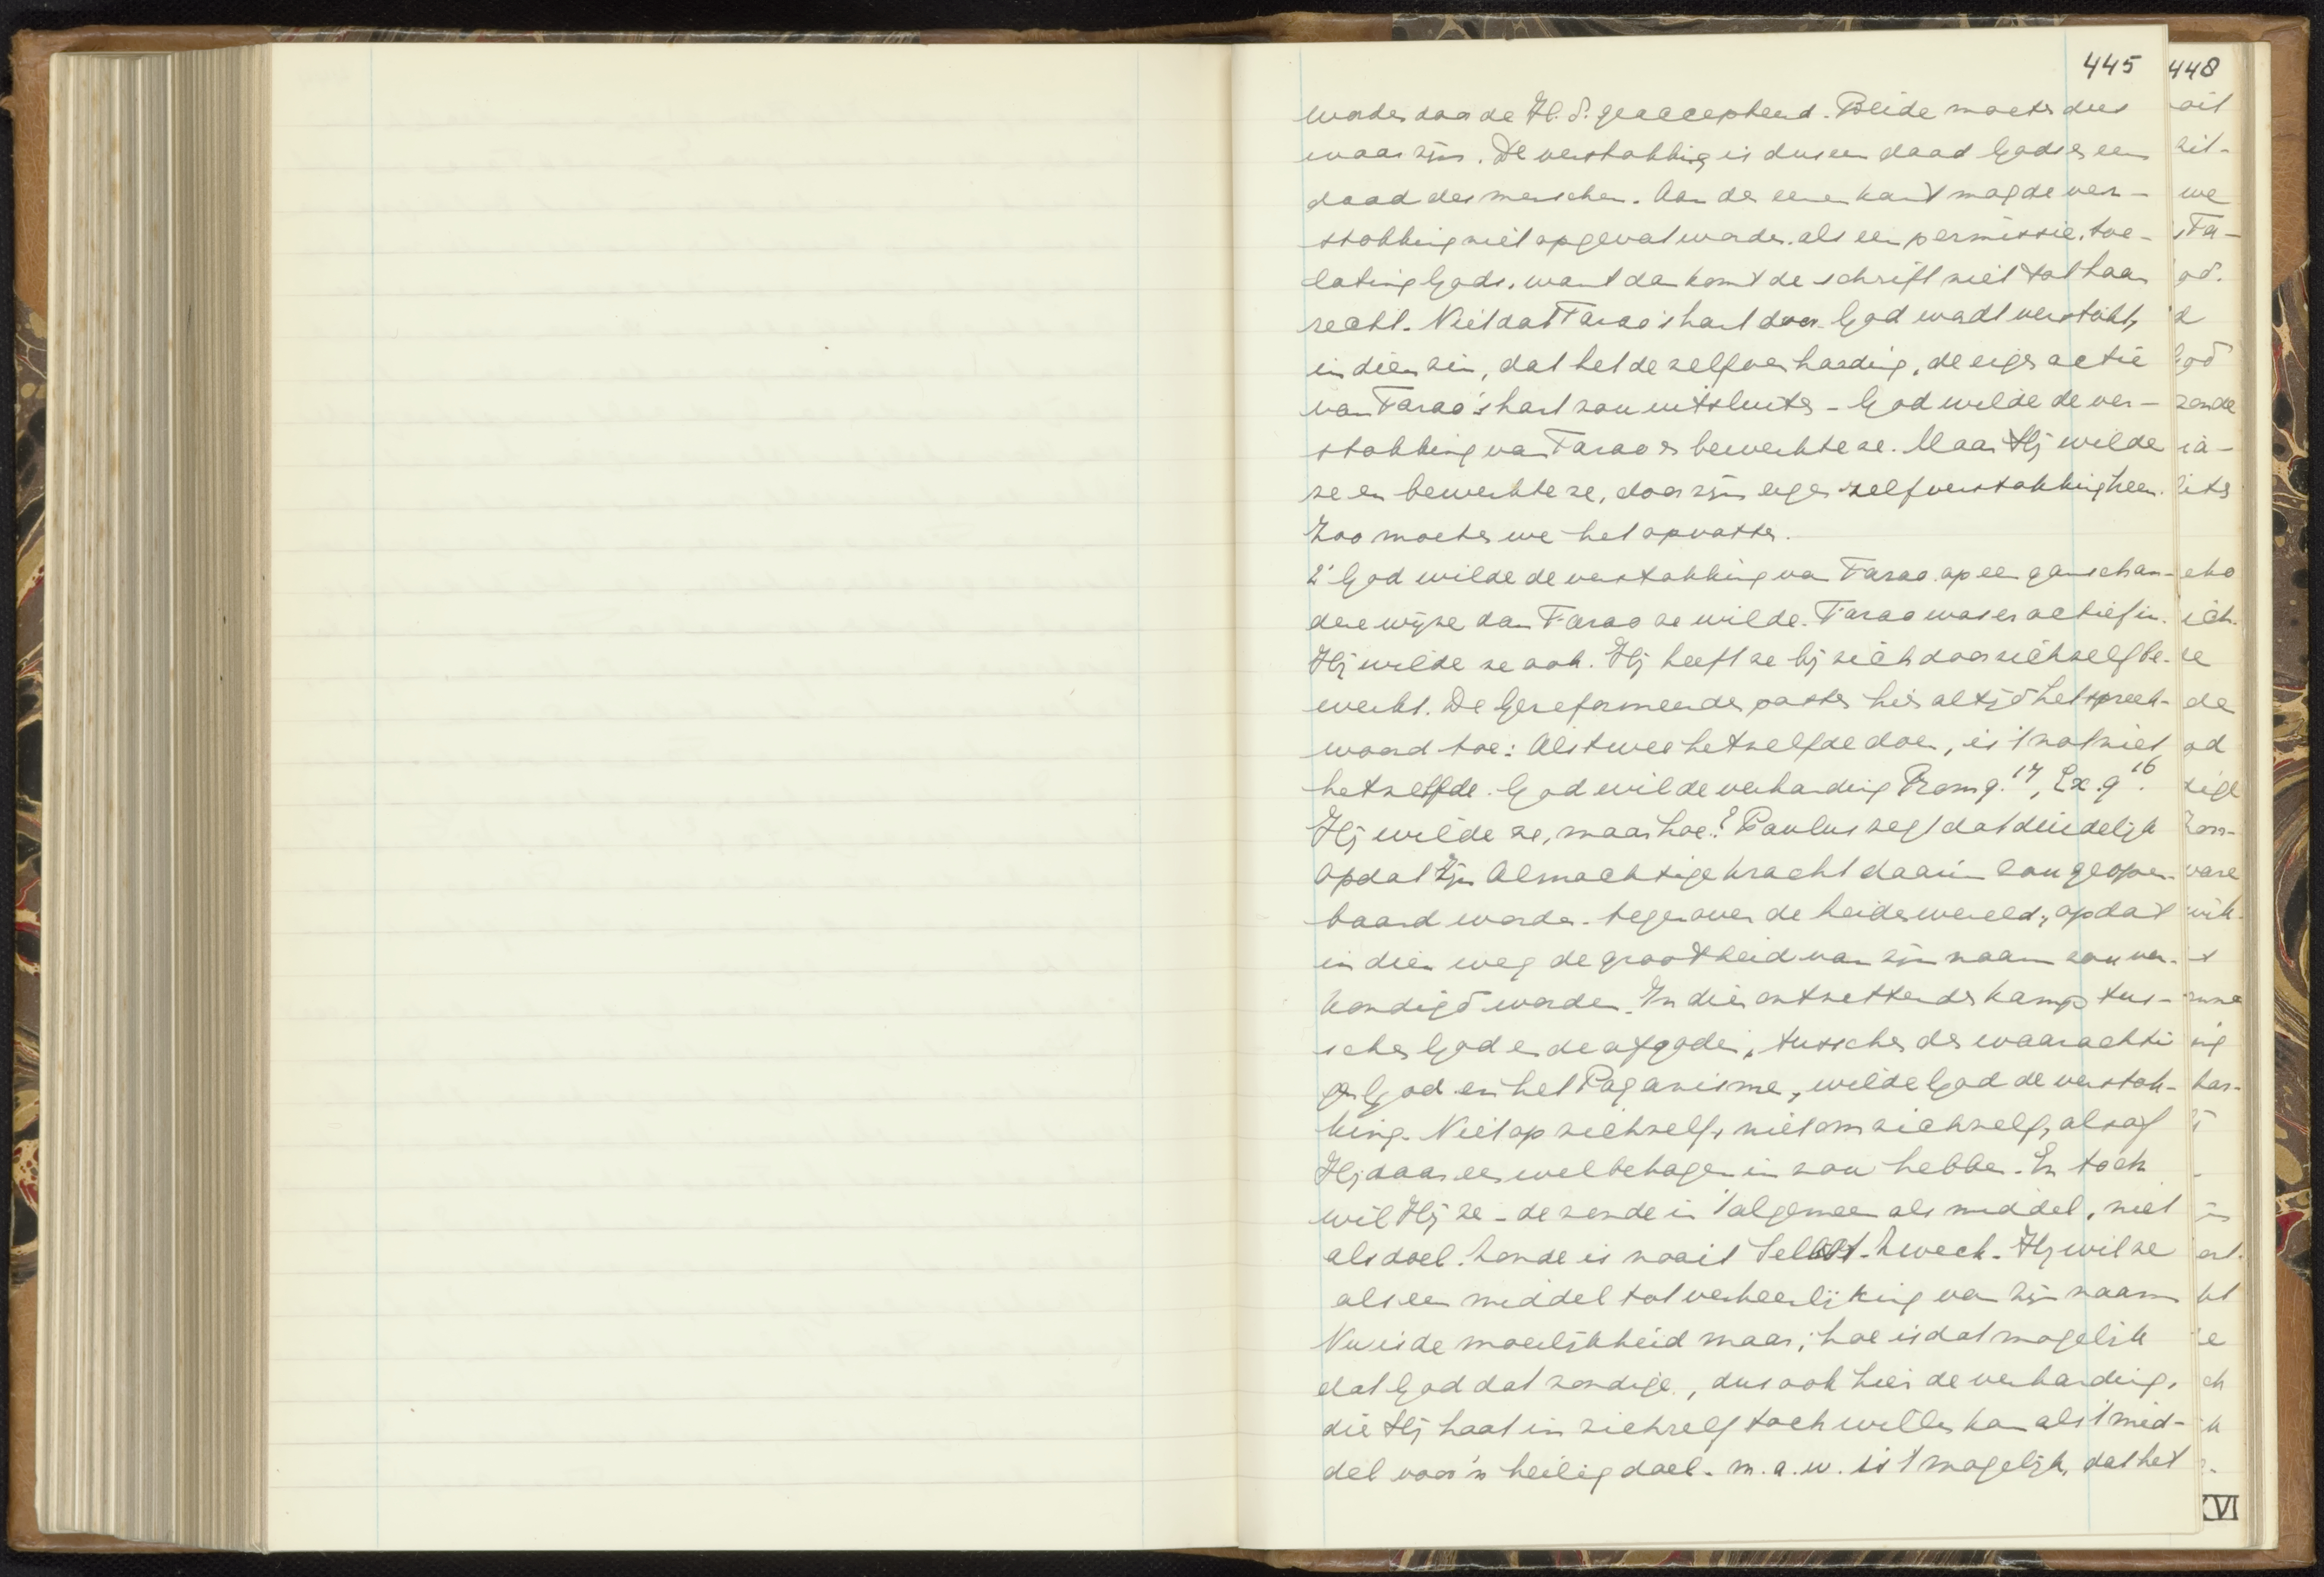 445
worden door de H.S. geaccepteerd. Beide moeten dus
waar zijn. De verstokking is dus een daad Gods en een
daad des menschen. Aan de eene kant mag de ver-
stokking niet opgevat worden als een permissie, toe-
lating Gods, want dan komt de schrift niet tot haar
recht. Niet dat Farao's hart door God wordt verstokt,
in dien zin, dat het de zelfverharding, de eigen actie
van Farao's hart zou uitsluiten - God wilde de ver-
stokking van Farao en bewerkte ze. Maar Hij wilde
ze en bewerkte ze, door zijn eigen zelfverstokking heen.
Zoo moeten we het opvatten.
2° God wilde de verstokking van Farao op een gansch an-
dere wijze dan Farao ze wilde. Farao was er actief in.
Hij wilde ze ook. Hij heeft ze bij zich door zichzelf be-
werkt. De Gereformeerden pasten hier altijd het spreek-
woord toe: Als twee hetzelfde doen, is 't nog niet
hetzelfde. God wil de verharding Rom 9.17, Ex. 9 16.
Hij wilde ze, maar hoe? Paulus zegt dat duidelijk
opdat Zijn Almachtige kracht daarin zou geopen-
baard worden. tegenover de heidenwereld, opdat
in dien weg de grootheid van zijn naam zou ver-
kondigd worden. In dien ontzettenden kamp tus-
schen God en de afgoden, tusschen den waarachti
gen God en het Paganisme, wilde God de verstok-
king. Niet op zichzelf, niet om zichzelf, alsof
Hij daar een welbehagen in zou hebben. En toch
wil Hij ze - de zonde in 't algemeen als middel, niet
als doel. Zonde is nooit Selbst-Zweck. Hij wil ze
als een middel tot verheerlijking van Zijn naam
Nu is de moeilijkheid maar; hoe is dat mogelijk
dat God dat zondige, dus ook hier de verharding,
die Hij haat in zichzelf toch willen kan als 't mid-
del voor 'n heilig doel. m.a.w. is 't mogelijk, dat het
448
XVI